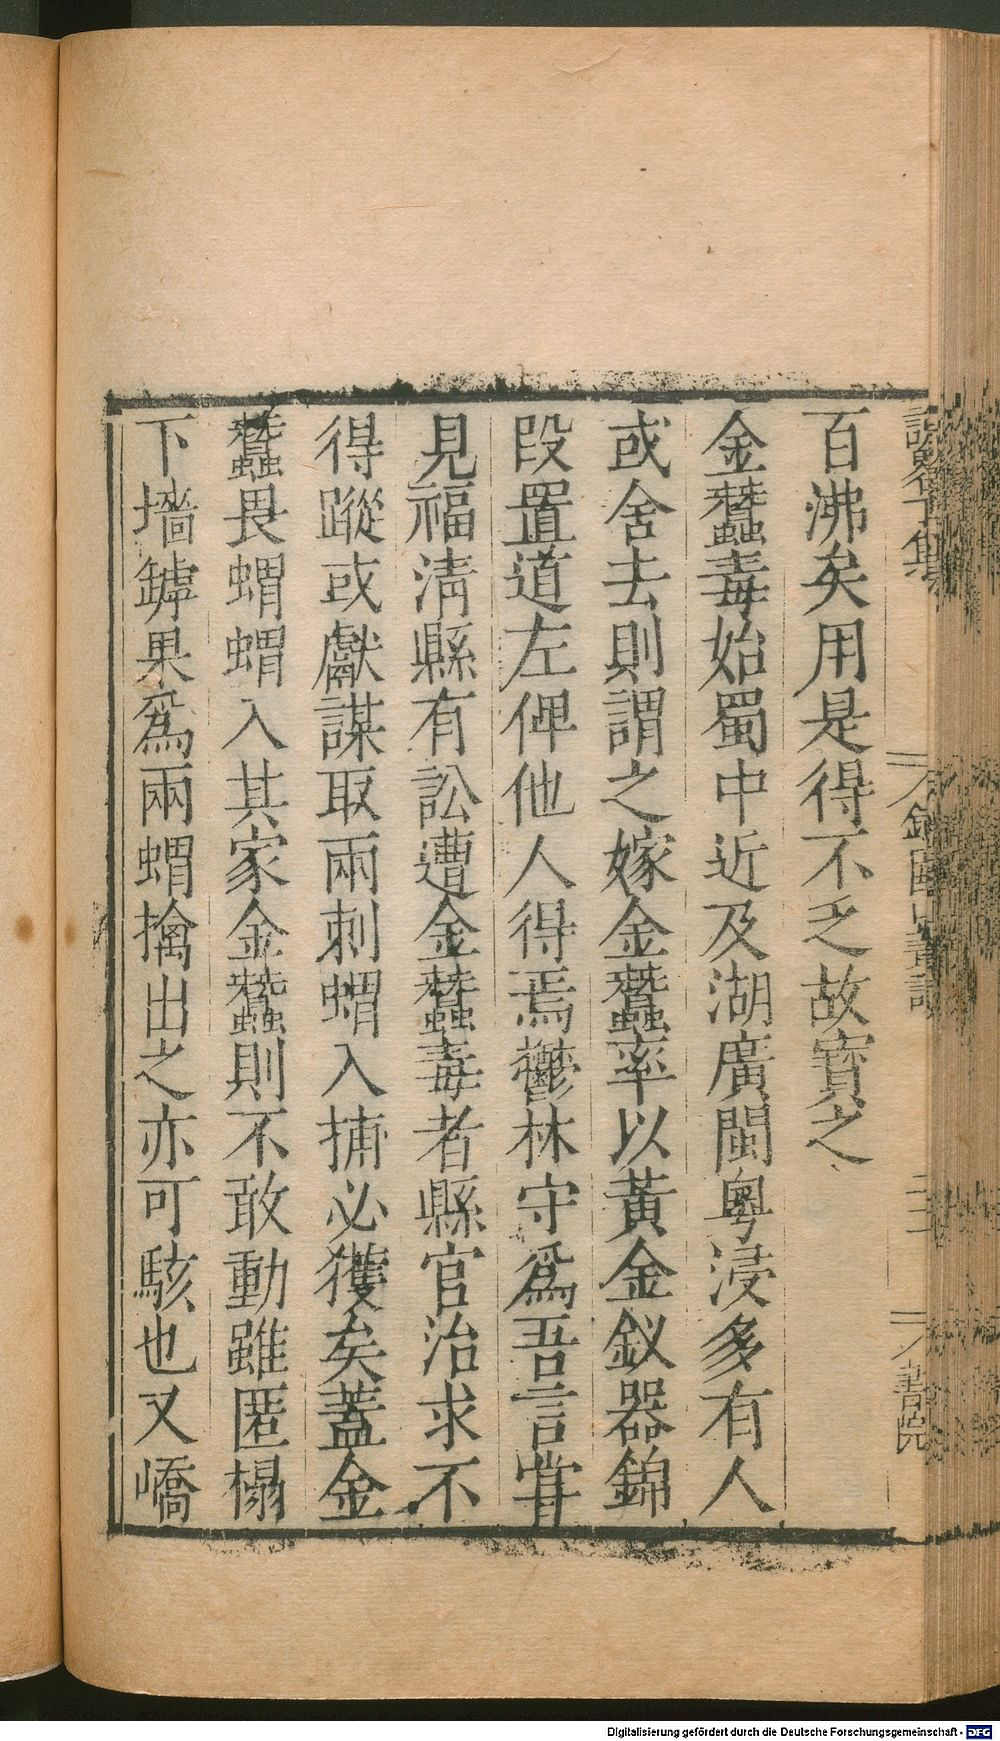 百沸矣用是得不乏故寳之
金蠶毒始蜀中近及湖廣閩粵浸多有人
或舍去則謂之嫁金蠶率以黃金釵器錦
段置道左俾他人得焉鬱林守爲吾言嘗
見福清縣有訟遭金蠶毒者縣官治求不
得蹤或獻謀取兩刺蝟入捕必獲矣蓋金
蠶畏蝟蝟入其家金蠶則不敢動雖匿榻
下墻罅果爲兩蝟擒出之亦可駭也又嶠
Digitalisierung gefördert durch die Deutsche Forschungsgemeinschaft - DFG